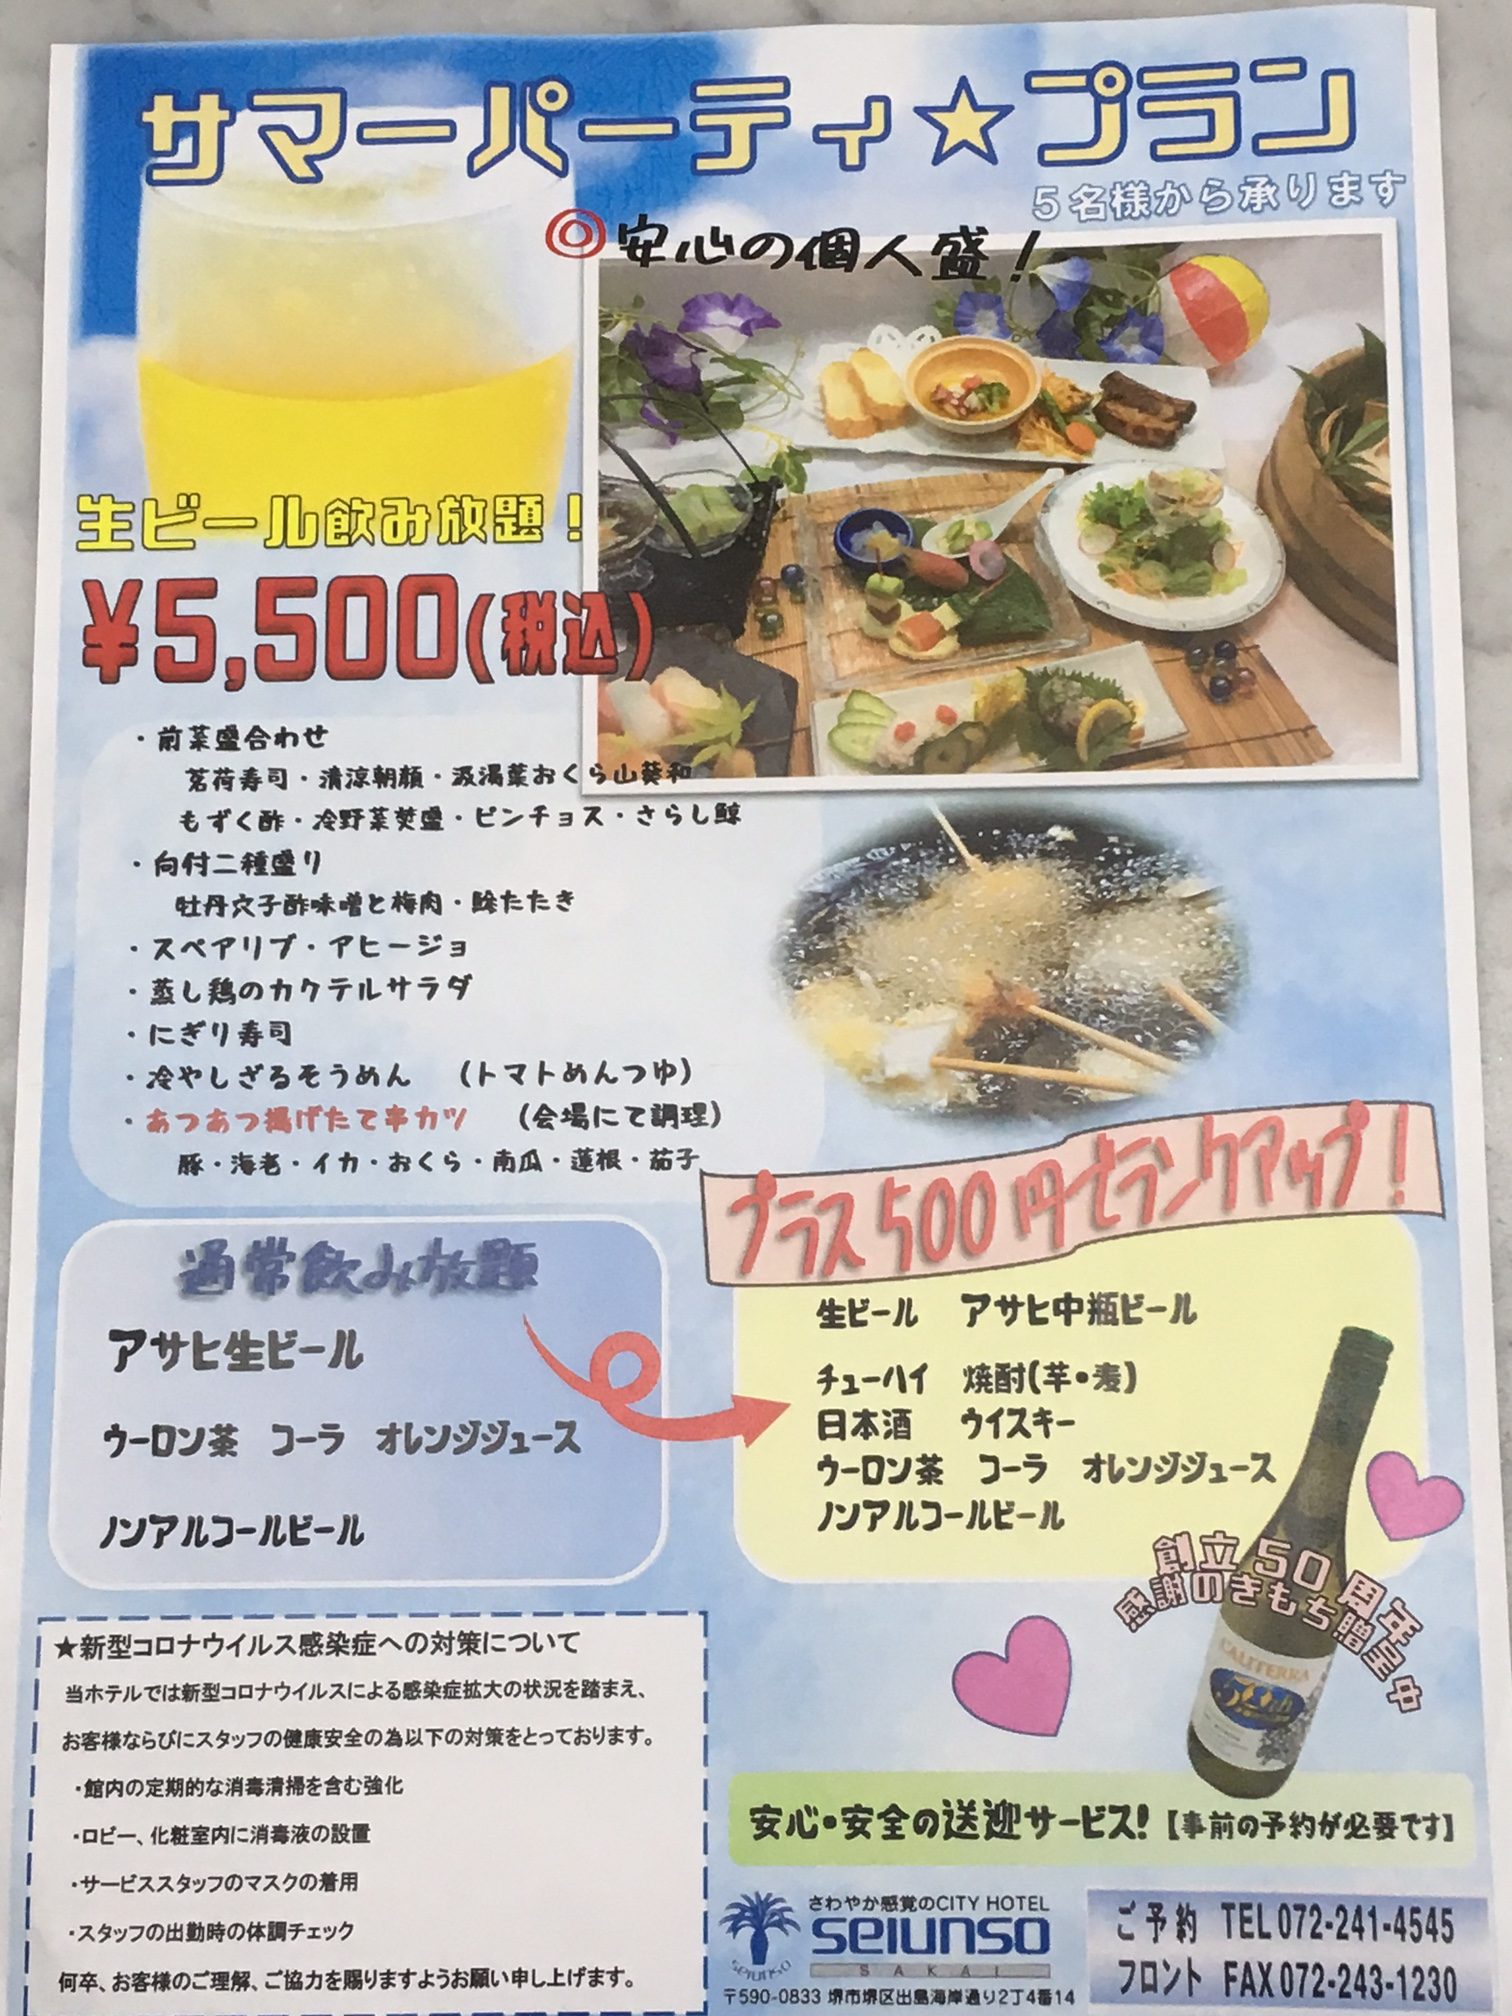 サマーパーティ☆プラン
5名様から承ります
◎安心の個人盛！
生ビール飲み放題！
¥5,500(税込)
・前菜盛合わせ
茗荷寿司・清涼朝顔・汲湯葉おくら山葵和
もずく酢・冷野菜焚盛・ピンチョス・さらし鯨
・向付二種盛り
牡丹穴子酢味噌と梅肉・鯵たたき
・スペアリブ・アヒージョ
・蒸し鶏のカクテルサラダ
・にぎり寿司
・冷やしざるそうめん （トマトめんつゆ）
・あつあつ揚げたて串カツ （会場にて調理）
豚・海老・イカ・おくら・南瓜・蓮根・茄子
通常飲み放題
アサヒ生ビール
ウーロン茶 コーラ オレンジジュース
ノンアルコールビール
プラス500円でランクアップ！
生ビール アサヒ中瓶ビール
チューハイ 焼酎(芋・麦)
日本酒 ウイスキー
ウーロン茶 コーラ オレンジジュース
ノンアルコールビール
創立50周年
感謝のきもち贈呈中
CALITERRA
50th
★新型コロナウイルス感染症への対策について
当ホテルでは新型コロナウイルスによる感染症拡大の状況を踏まえ、
お客様ならびにスタッフの健康安全の為以下の対策をとっております。
・館内の定期的な消毒清掃を含む強化
・ロビー、化粧室内に消毒液の設置
・サービススタッフのマスクの着用
・スタッフの出勤時の体調チェック
何卒、お客様のご理解、ご協力を賜りますようお願い申し上げます。
安心・安全の送迎サービス！【事前の予約が必要です】
さわやか感覚のCITY HOTEL
SEIUNSO
SEIUNSO
SAKAI
〒590-0833 堺市堺区出島海岸通り2丁4番14
ご予約 TEL072-241-4545
フロント FAX072-243-1230